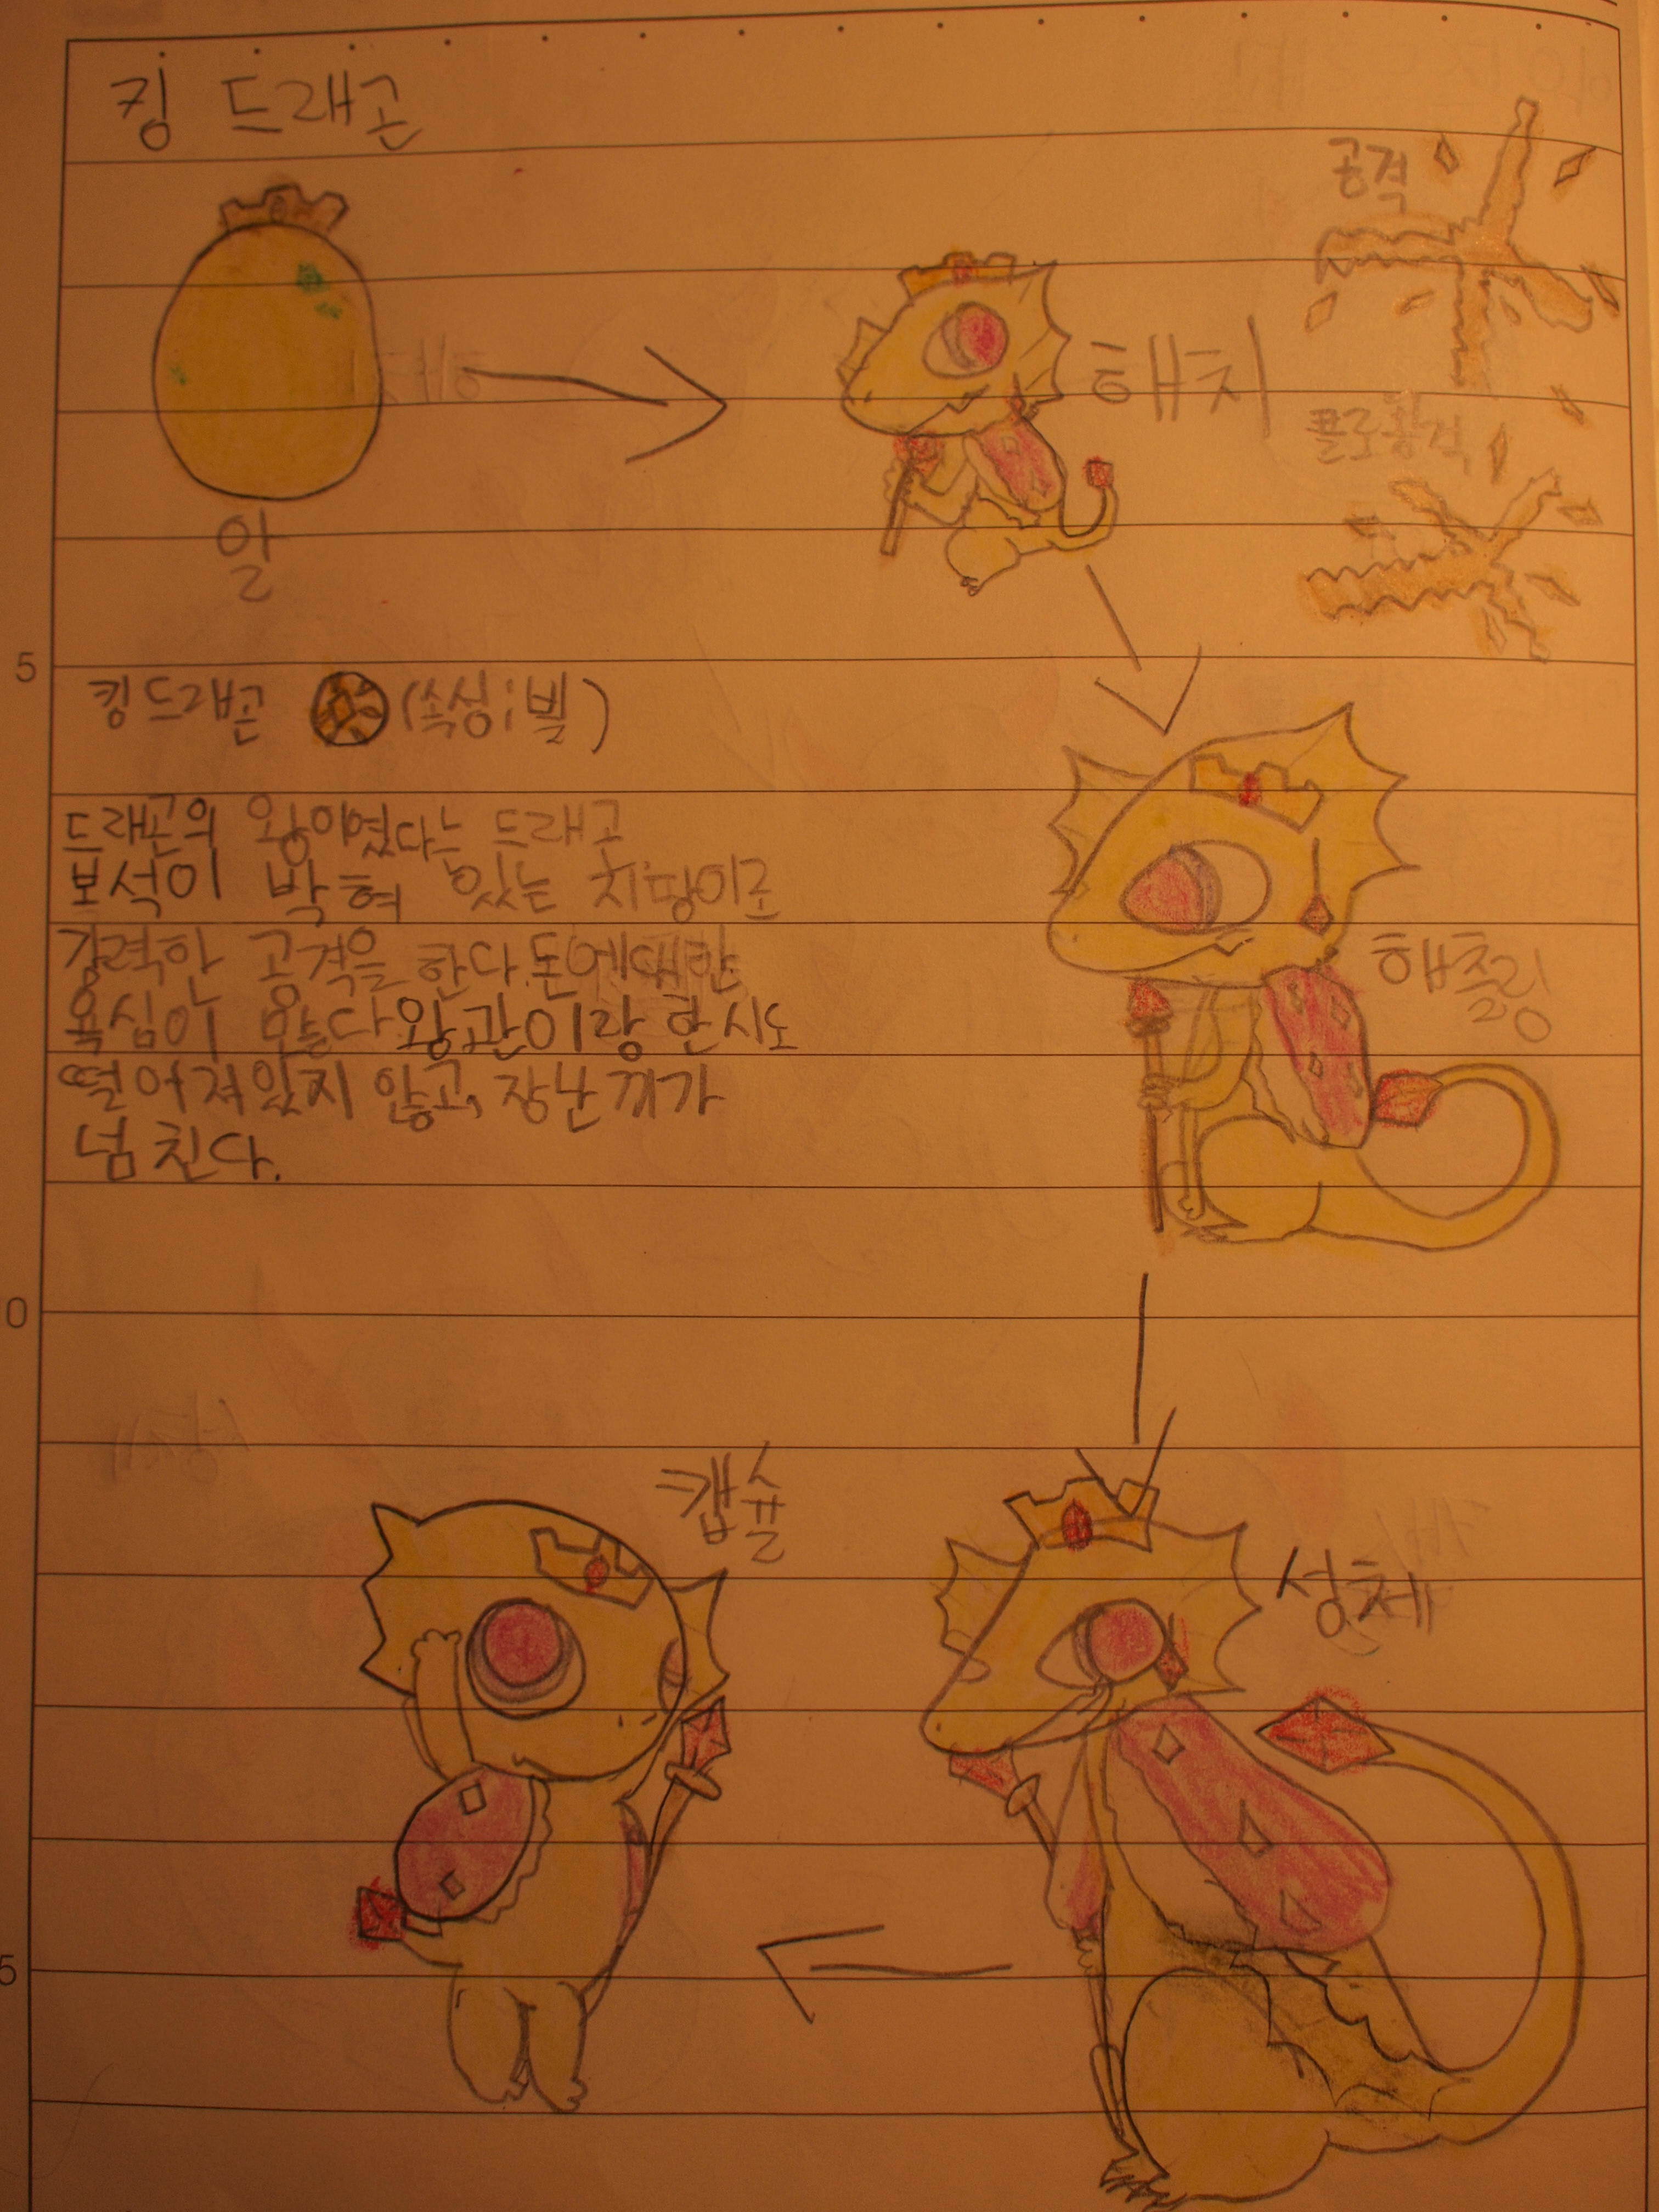 킹 드래곤
공격
해치
알
킹드래곤 (속성;빛)
드래곤의 왕이였다는 드래곤
보석이 박혀 있는 지팡이로
강력한 공격을 한다.돈에대한
욕심이 많다왕관이랑 한시도
떨어져있지 않고, 장난끼가
넘친다.
해츨링
캡슐
성체
5
0
5